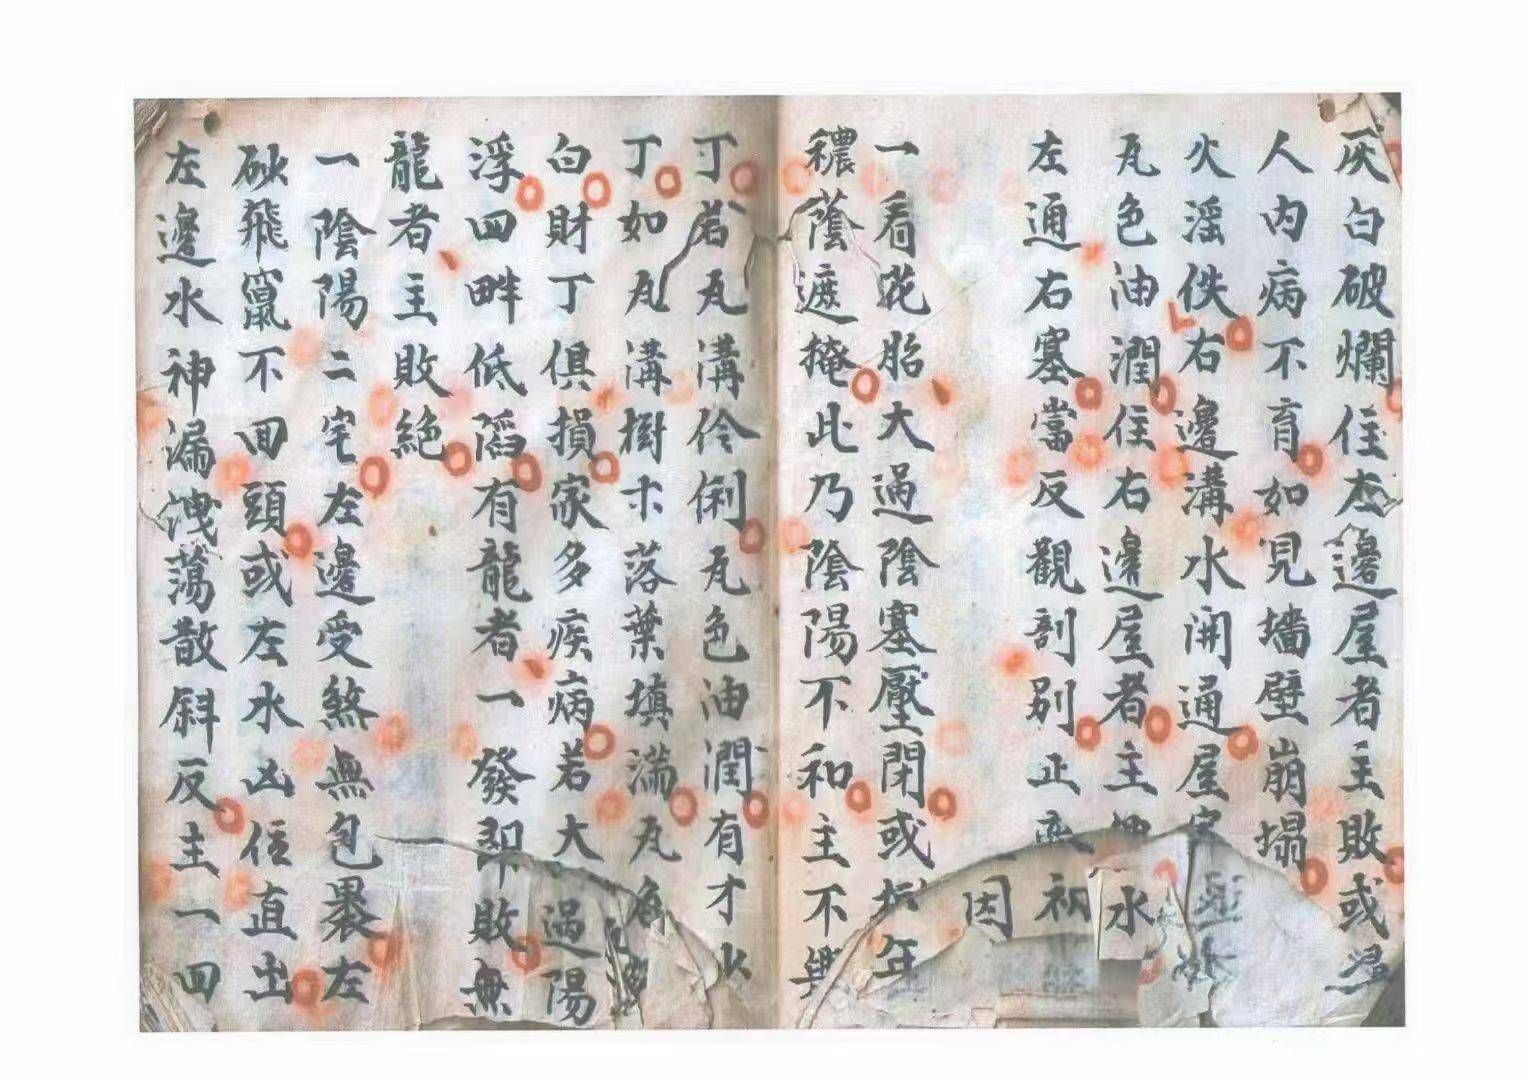 灰白破爛住左邊屋者主敗或
人内病不育如見墻壁崩塌
火淫佚右邊溝水開通屋
瓦色油潤住右邊屋者主 水
左通右塞當反觀剖别正 初
因
一看花胎大過陰塞壓閉或 年
穠蔭遮掩此乃陰陽不和主不興
丁若瓦溝伶俐瓦色油潤有才
丁如瓦溝樹木落葉填滿瓦
白財丁俱損家多疾病若大過陽
浮四畔低陷有龍者一發即敗無
龍者主敗絕
一陰陽二宅左邊受煞無包裹左
砂飛竄不回頭或左水凶位直出
左邊水神漏洩蕩散斜反主一四